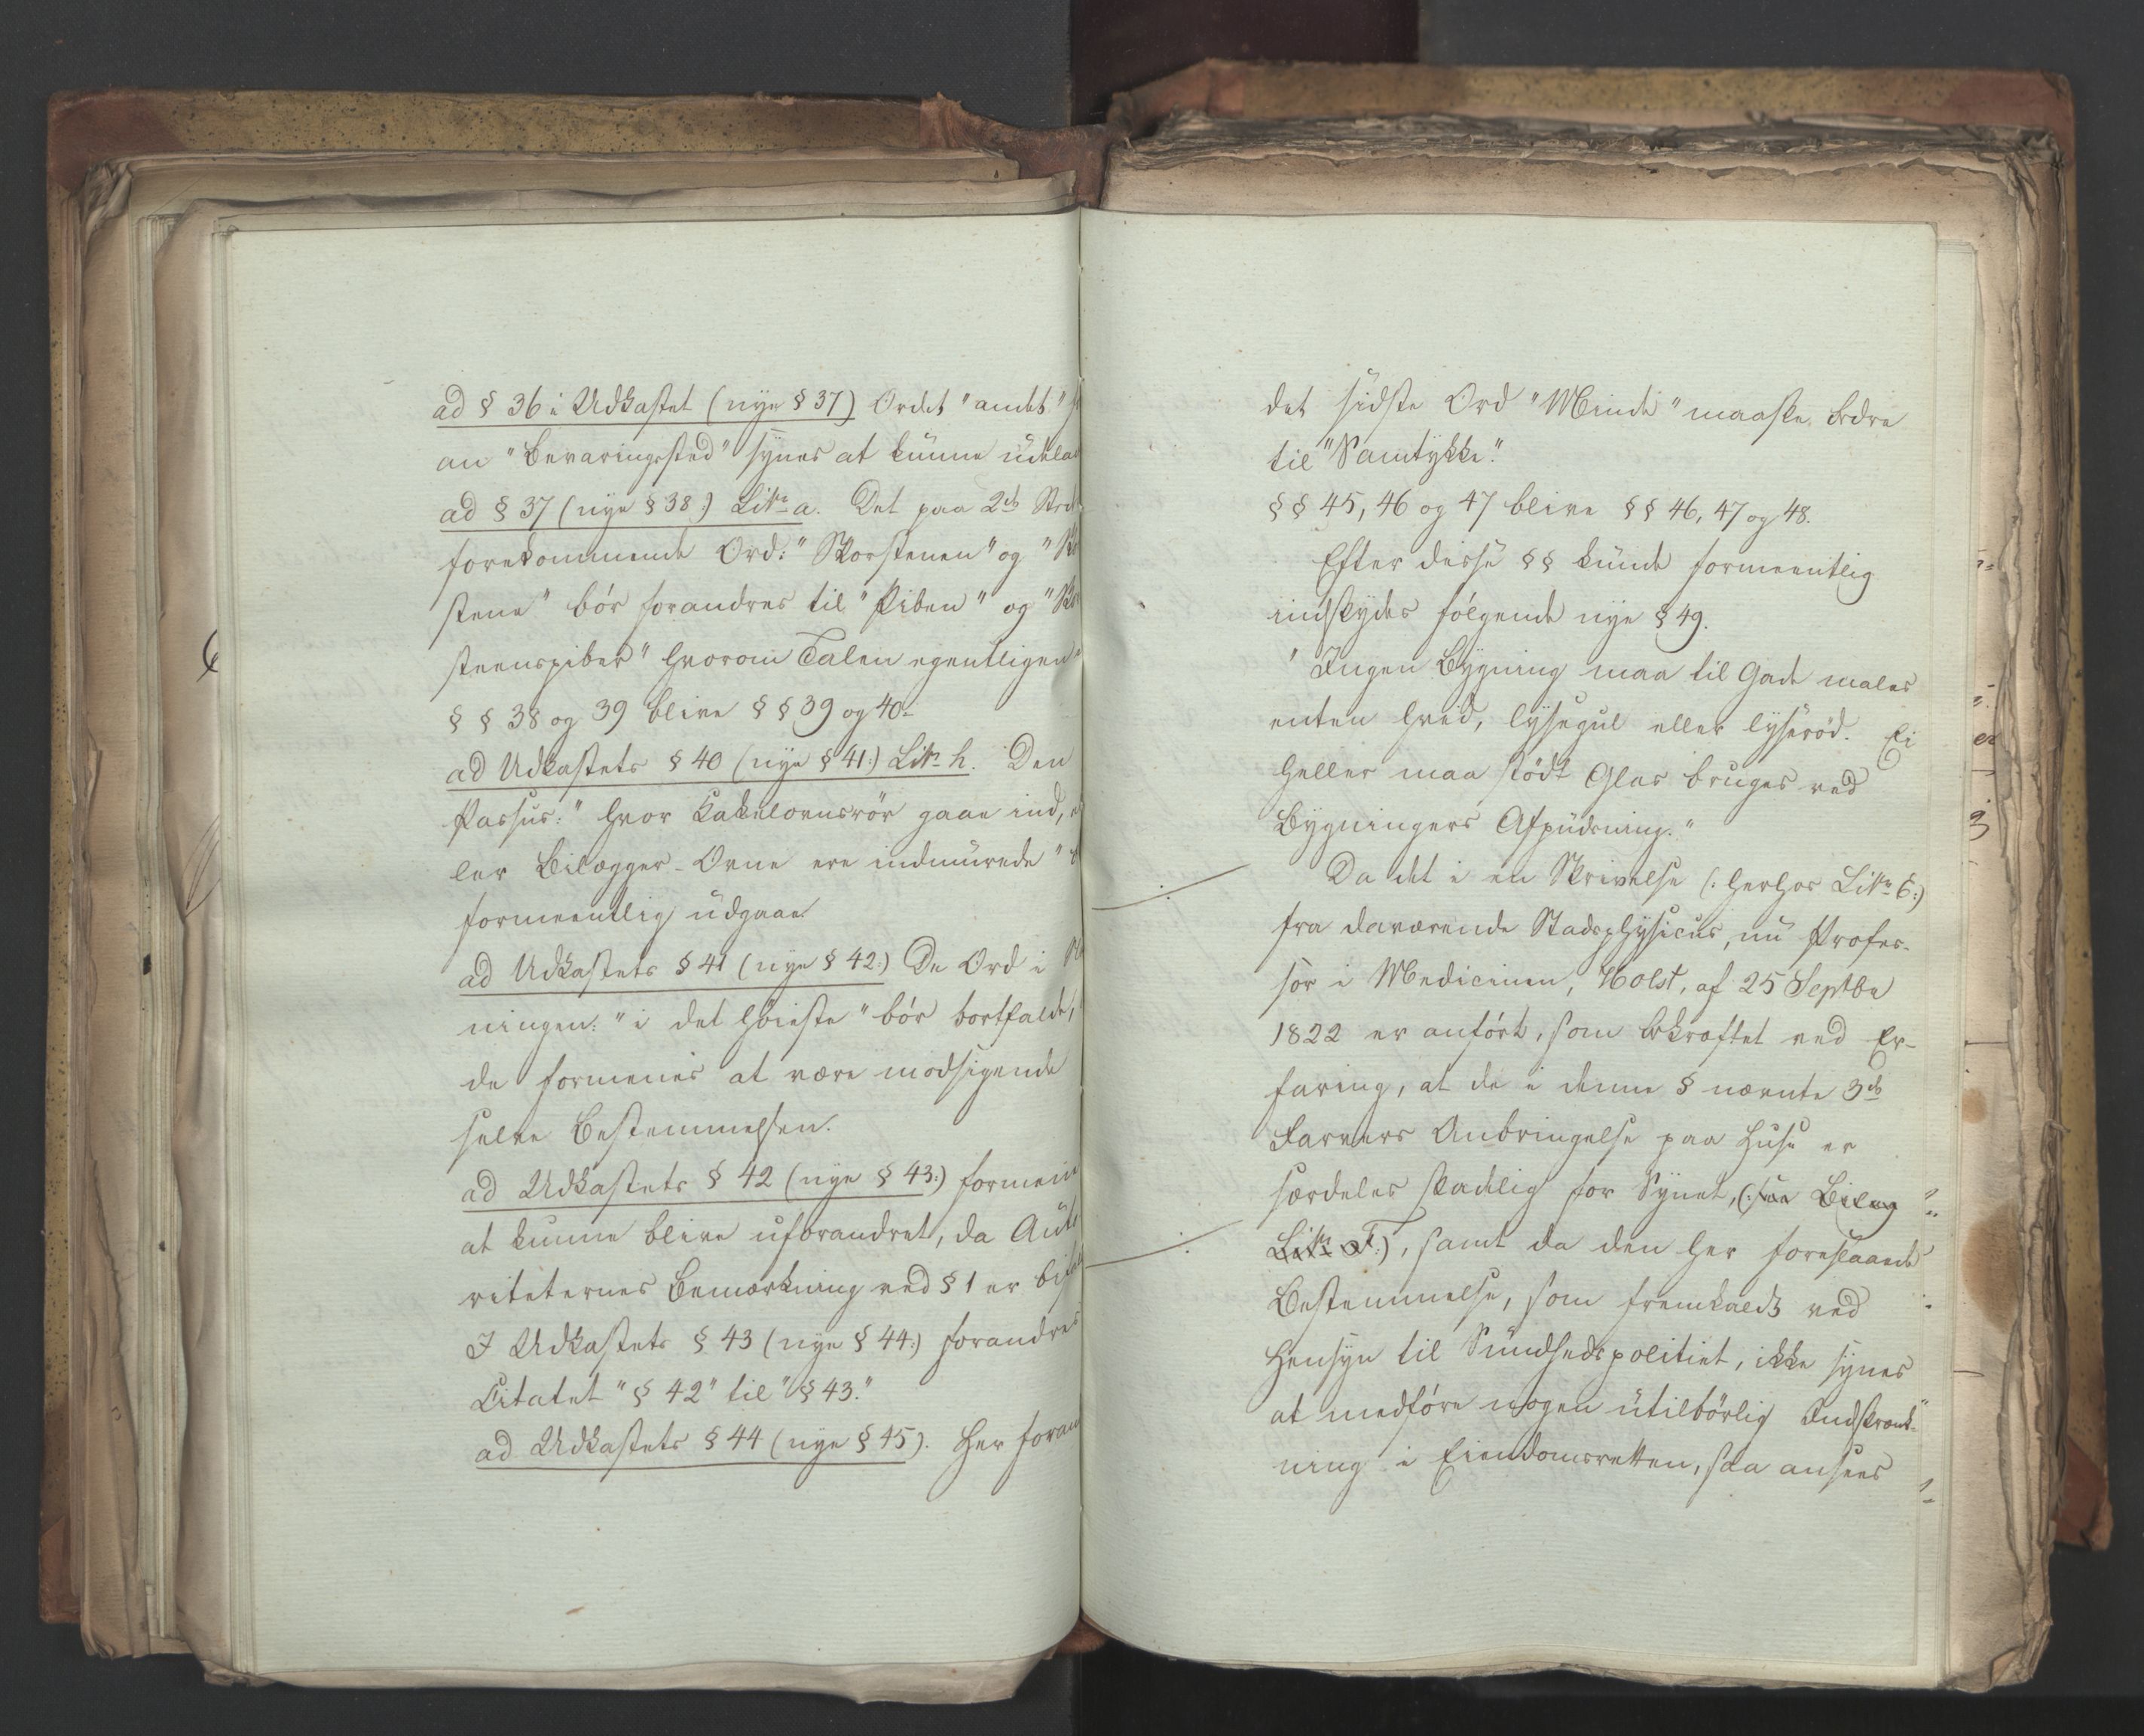 ad § 36 i Udkastet (nye § 37) Ordet "andet"
an "Bevaringssted" synes at kunne udela
ad § 37 (nye § 38:) Litr a. Det paa 2de Sted
forekommende Ord: "Skorstenen" og "Skor
stene" bør forandres til "Piben" og "Skor
steenspiber" hvorom Talen egentligen
§ § 38 og 39 blive § § 39 og 40.
ad Udkastets § 40 (nye § 41:) Litr h. Den
Passus: "hvor Kakelovnsrör gaae ind, el
ler Bilægger-Ovne ere indmurede"
formeentlig udgaae.
ad Udkastets § 41 (nye § 42:) De Ord i
ningen: "i det høieste" bör bortfalde,
de formenes at være modsigende
selve Bestemmelsen.
ad Udkastets § 42 (nye § 43:) formein
at kunne blive uforandret, da Auto
riteternes Bemærkning ved § 1 er
I Udkastets § 43 (nye § 44:) forandres
Citatet "§ 42" til "§ 43."
ad Udkastets § 44 (nye § 45). Her foran
det sidste Ord "Minde" maaske bedre
til "Samtykke."
§ § 45, 46 og 47 blive § § 46, 47 og 48.
Efter disse §§ kunde formeentlig
indskydes følgende nye § 49.
"Ingen Bygning maa til Gade males
enten hvid, lysegul eller lyserød. Ei
heller maa stødt Glas bruges ved
Bygningers Afpudsning."
Da det i en Skrivelse (: herhos Litr 6:)
fra daværende Stadsphysicus, nu Profes-
sor i Medicinen, Holst, af 25 Septbr
1822 er anført, som bekræftet ved Er-
faring, at de i denne § nævnte 3de
Farvers Anbringelse paa Huse er
særdeles skadelig for Synet, (: see Bilag
Litr F:), samt da den her foreslaaede
Bestemmelse, som fremkaldt ved
Hensyn til Sundhedspolitiet, ikke synes
at medføre nogen utilbörlig Indskrænk-
ning i Eiendomsretten, saa ansees